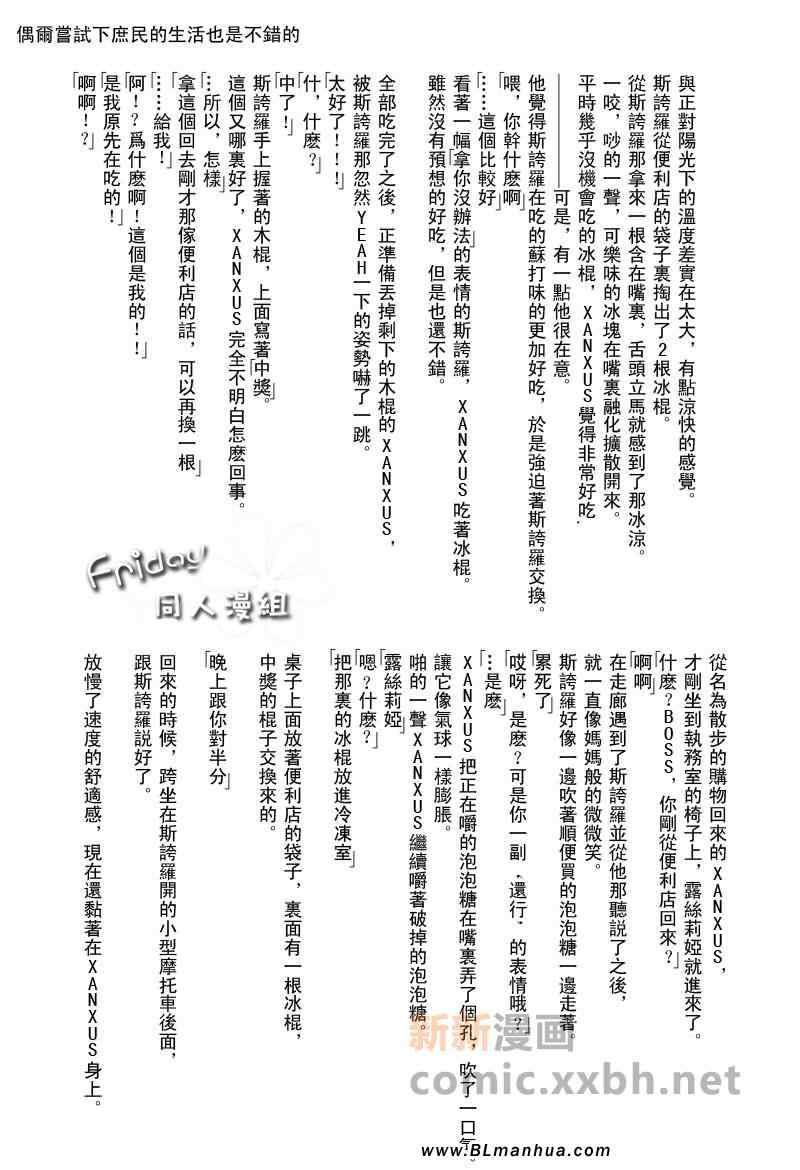 偶爾嘗試下庶民的生活也是不錯的
與正對陽光下的溫度差實在太大，有點涼快的感覺。
斯誇羅從便利店的袋子裏掏出了2根冰棍。
從斯誇羅那拿來一根含在嘴裏，舌頭立馬就感到了那冰涼。
一咬，吵的一聲，可樂味的冰塊在嘴裏融化擴散開來。
平時幾乎沒機會吃的冰棍，XANXUS覺得非常好吃.
————————可是，有一點他很在意。
他覺得斯誇羅在吃的蘇打味的更加好吃，於是強迫著斯誇羅交換。
「喂，你幹什麼啊」
「……這個比較好」
看著一幅「拿你沒辦法」的表情的斯誇羅，XANXUS吃著冰棍。
雖然沒有預想的好吃，但是也還不錯。
全部吃完了之後，正準備丟掉剩下的木棍的XANXUS，
被斯誇羅那忽然YEAH一下的姿勢嚇了一跳。
「太好了！！！」
「什，什麼？」
「中了！」
斯誇羅手上握著的木棍，上面寫著「中獎」。
這個又哪裏好了，XANXUS完全不明白怎麼回事。
「…所以，怎樣」
「拿這個回去剛才那傢便利店的話，可以再換一根」
「……給我！」
「阿！？爲什麼啊！這個是我的！！」
「是我原先在吃的！」
「啊啊！？」
Friday
同人漫組
從名為散步的購物回來的XANXUS，
才剛坐到執務室的椅子上，露絲莉婭就進來了。
「什麼？BOSS，你剛從便利店回來？」
「啊啊」
在走廊遇到了斯誇羅並從他那聽説了之後，
就一直像媽媽般的微微笑。
斯誇羅好像一邊吹著順便買的泡泡糖一邊走著。
「累死了」
「哎呀，是麽？可是你一副‘還行’的表情哦？」
「…是麽」
XANXUS把正在嚼的泡泡糖在嘴裏弄了個孔，吹了一口氣。
讓它像氣球一樣膨脹。
啪的一聲XANXUS繼續嚼著破掉的泡泡糖。
「露絲莉婭」
「嗯？什麼？」
「把那裏的冰棍放進冷凍室」
桌子上面放著便利店的袋子，裏面有一根冰棍，
中獎的棍子交換來的。
「晚上跟你對半分」
回來的時候，跨坐在斯誇羅開的小型摩托車後面，
跟斯誇羅説好了。
放慢了速度的舒適感，現在還黏著在XANXUS身上。
新新漫画
comic.xxbh.net
www.BLmanhua.com